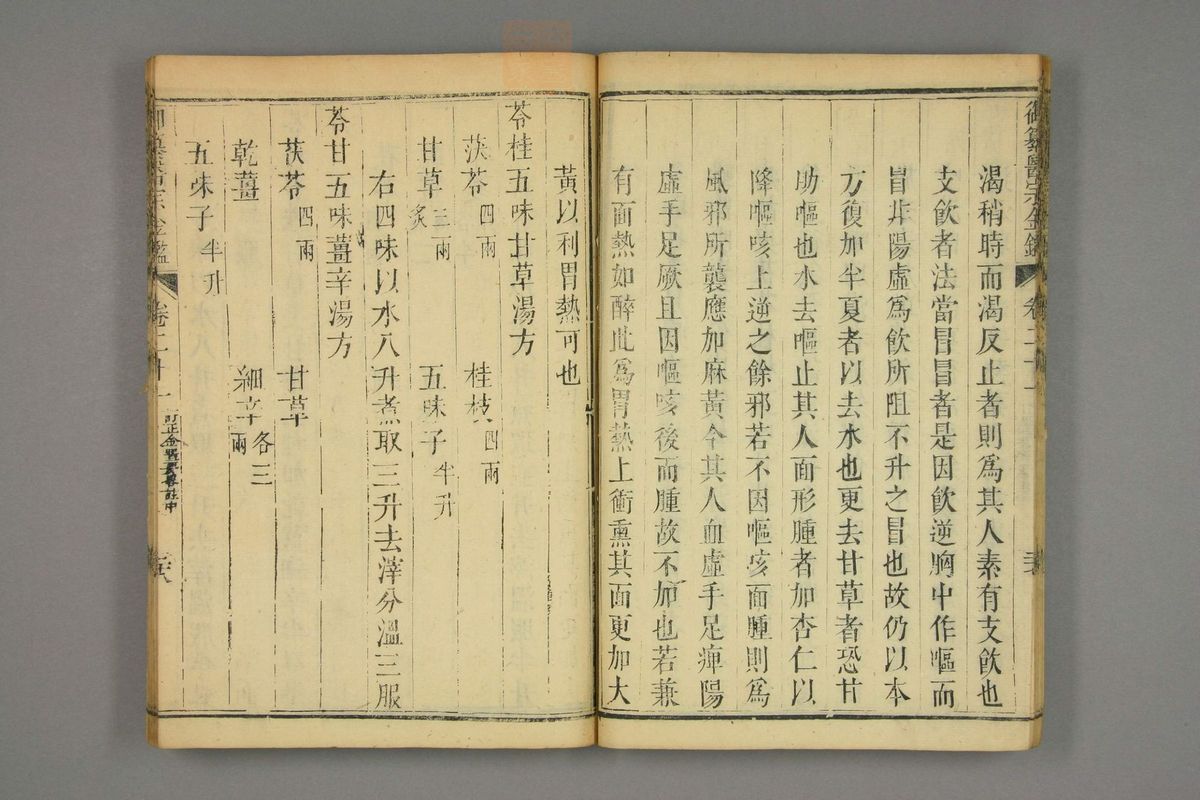 御纂醫宗金鑑 卷二十一
渴稍時而渴反止者則爲其人素有支飲也
支飲者法當冒冒者是因飲逆胸中作嘔而
冒非陽虛爲飲所阻不升之冒也故仍以本
方復加半夏者以去水也更去甘草者恐甘
助嘔也水去嘔止其人面形腫者加杏仁以
降嘔咳上逆之餘邪若不因嘔咳面腫則爲
風邪所襲應加麻黃今其人血虛手足痺陽
虛手足厥且因嘔咳後而腫故不加也若兼
有面熱如醉此爲胃熱上衝熏其面更加大
黃以利胃熱可也
苓桂五味甘草湯方
茯苓四兩 桂枝四兩
甘草三兩炙 五味子半升
右四味以水八升煮取三升去滓分溫三服
苓甘五味薑辛湯方
茯苓四兩 甘草
乾薑 細辛各三兩
五味子半升
御纂醫宗金鑑 卷二十一 訂正金匱要畧註中